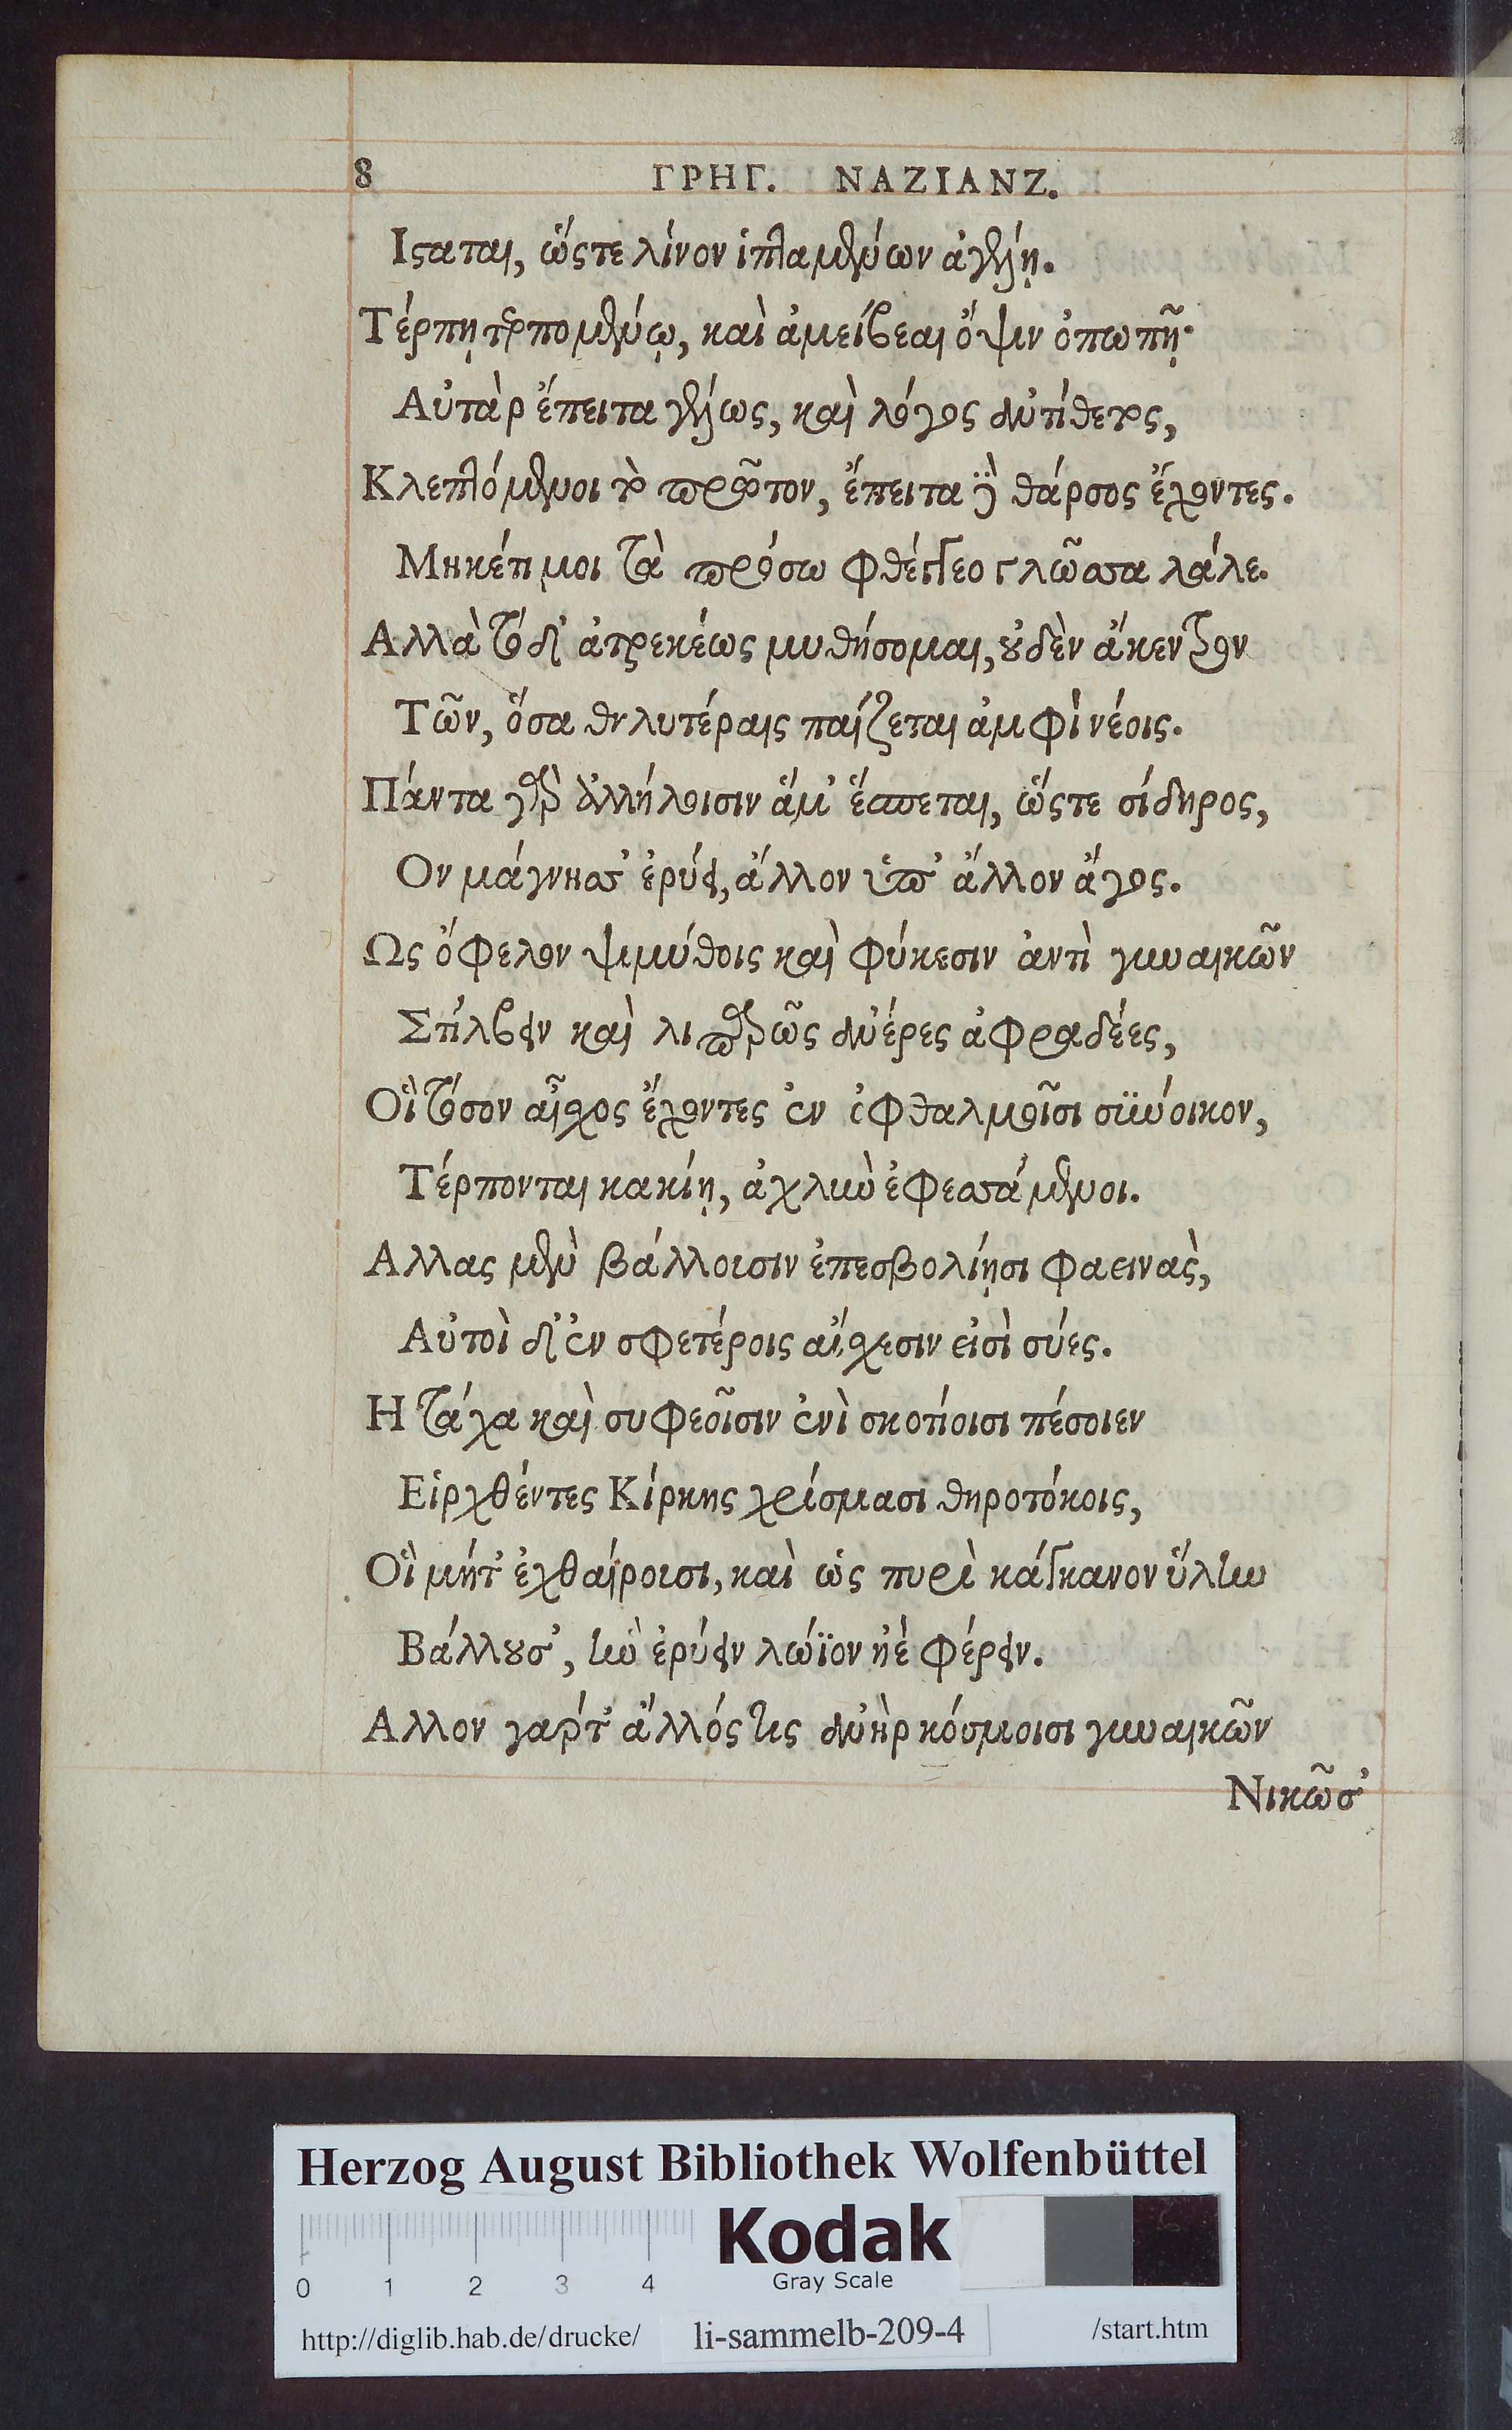 8 ΓΡΗΓ. ΝΑΖΙΑΝΖ.
Ιϛαται, ὥϛτε λίνον ἱπταμένων ἀγέλῃ.
Τέρπῃ τερπομένῳ, καὶ ἀμείβεαι ὄψιν ὀπωπῇ·
Αὐτὰρ ἔπειτα γέλως, καὶ λόγος ἀντίθετος,
Κλεπτόμενοι τὸ πρῶτον, ἔπειτα δὲ θάρσος ἔχοντες.
Μηκέτι μοι τὰ πρόσω φθέγγεο γλῶσσα λάλε.
Αλλὰ τόδ' ἀτρεκέως μυθήσομαι, οὐδὲν ἄκεντρον
Τῶν, ὅσα θηλυτέραις παίζεται ἀμφὶ νέοις.
Πάντα γὰρ ἀλλήλοισιν ἅμ' ἕσπεται, ὥϛτε σίδηρος,
Ον μάγνησσ' ἐρύει, ἄλλον ὑπ' ἄλλον ἄγος.
Ως ὄφελον ψιμύθοις καὶ φύκεσιν ἀντὶ γυναικῶν
Στίλβειν καὶ λιπαρῶς ἀνέρες ἀφραδέες,
Οἳ τόσον αἶσχος ἔχοντες ἐν ὀφθαλμοῖσι σύνοικον,
Τέρπονται κακίῃ, ἀχλὺν ἐφεσσάμενοι.
Αλλας μὲν βάλλοισιν ἐπεσβολίῃσι φαεινὰς,
Αὐτοὶ δ' ἐν σφετέροις αἴσχεσιν εἰσὶ σύες.
Η τάχα καὶ συφεοῖσιν ἐνὶ σκοτίοισι πέσοιεν
Εἰρχθέντες Κίρκης χρίσμασι θηροτόκοις,
Οἳ μήτ' ἐχθαίροισι, καὶ ὡς πυρὶ κάγκανον ὕλην
Βάλλουσ', ἣν ἐρύειν λώϊον ἠὲ φέρειν.
Αλλον γαρ τ' ἄλλός τις ἀνὴρ κόσμοισι γυναικῶν
Νικῶσ'
Herzog August Bibliothek Wolfenbüttel
Kodak
Gray Scale
0 1 2 3 4
http://diglib.hab.de/drucke/ li-sammelb-209-4 /start.htm